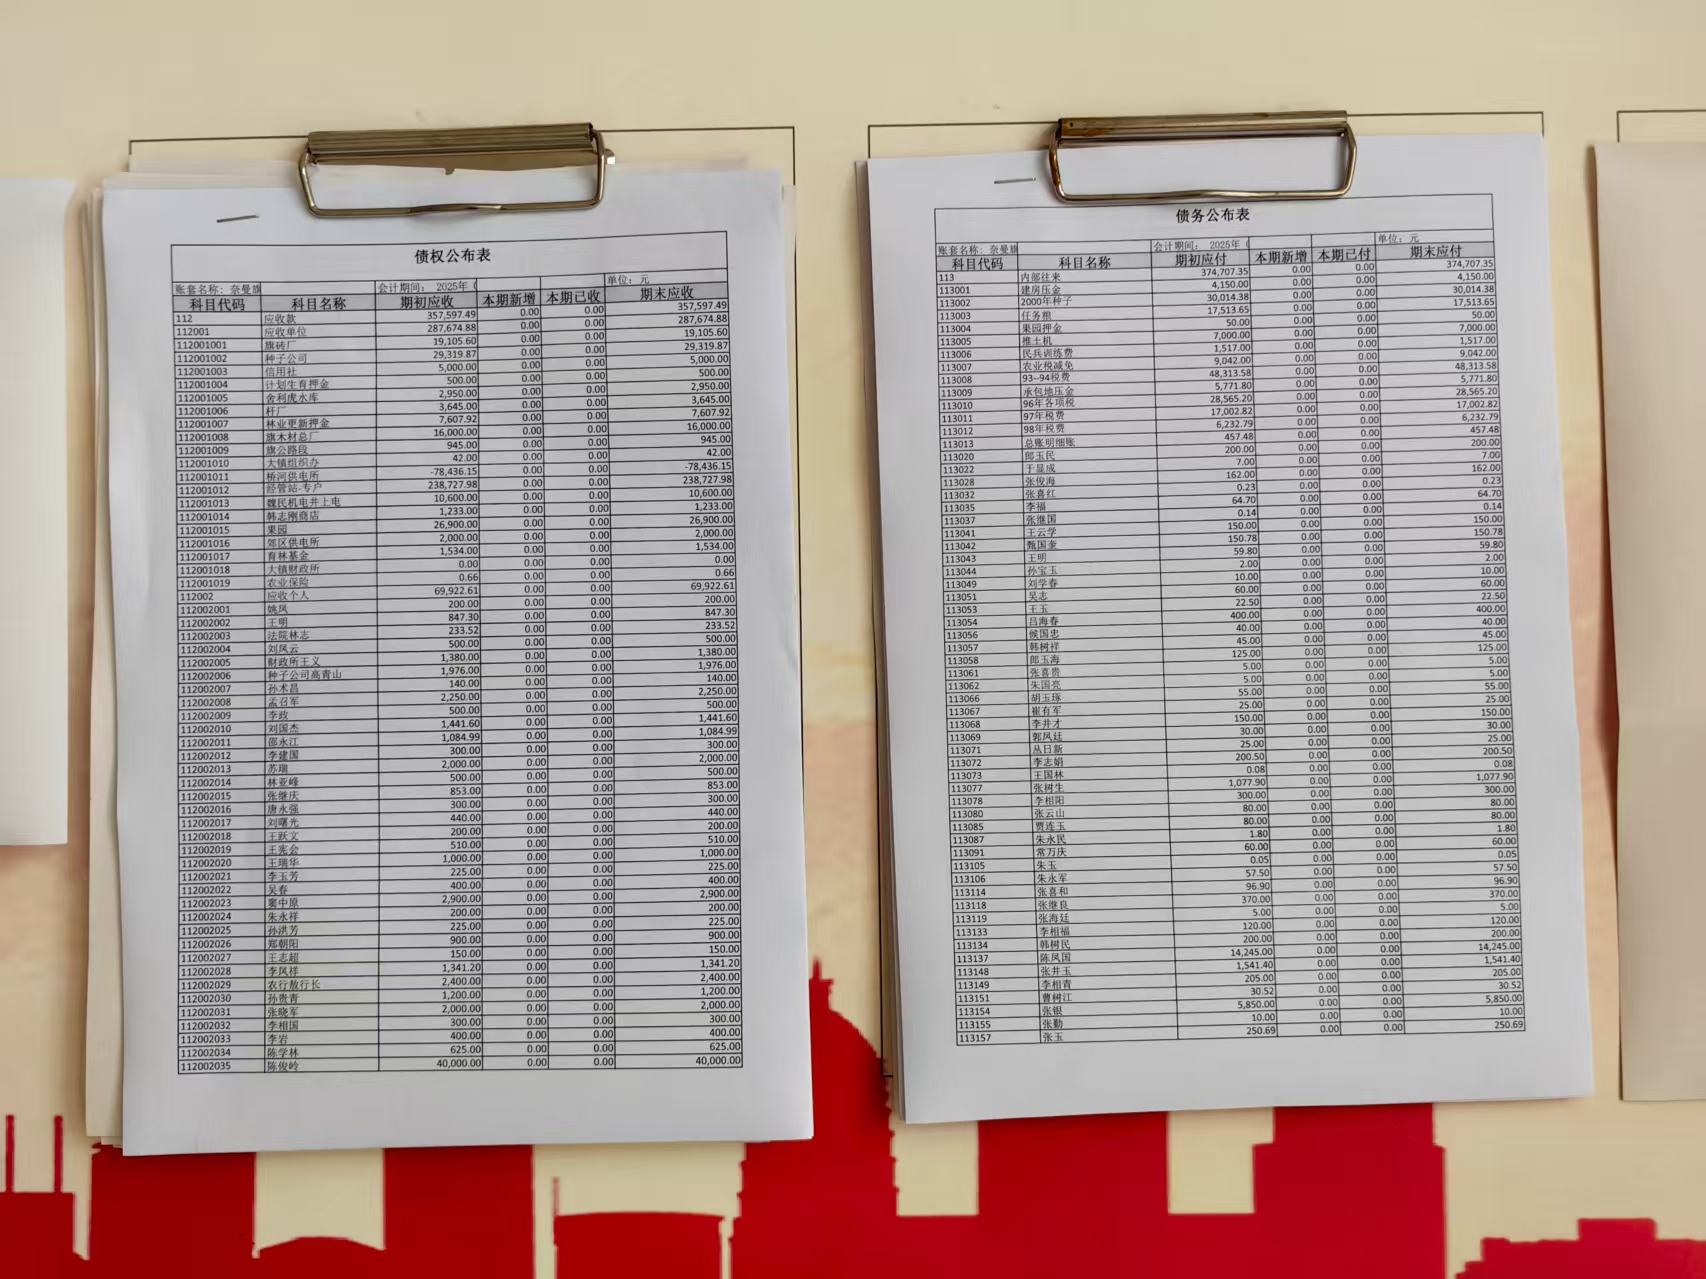 债权公布表
账套名称: 奈曼旗 会计期间: 2025年 单位: 元
科目代码 科目名称 期初应收 本期新增 本期已收 期末应收
112 应收款 357,597.49 0.00 0.00 357,597.49
112001 应收单位 287,674.88 0.00 0.00 287,674.88
112001001 旗砖厂 19,105.60 0.00 0.00 19,105.60
112001002 种子公司 29,319.87 0.00 0.00 29,319.87
112001003 信用社 5,000.00 0.00 0.00 5,000.00
112001004 计划生育押金 500.00 0.00 0.00 500.00
112001005 舍利虎水库 2,950.00 0.00 0.00 2,950.00
112001006 杆厂 3,645.00 0.00 0.00 3,645.00
112001007 林业更新押金 7,607.92 0.00 0.00 7,607.92
112001008 旗木材总厂 16,000.00 0.00 0.00 16,000.00
112001009 旗公路段 945.00 0.00 0.00 945.00
112001010 大镇组织办 42.00 0.00 0.00 42.00
112001011 桥河供电所 -78,436.15 0.00 0.00 -78,436.15
112001012 经管站-专户 238,727.98 0.00 0.00 238,727.98
112001013 魏民机电井上电 10,600.00 0.00 0.00 10,600.00
112001014 韩志刚商店 1,233.00 0.00 0.00 1,233.00
112001015 果园 26,900.00 0.00 0.00 26,900.00
112001016 郊区供电所 2,000.00 0.00 0.00 2,000.00
112001017 育林基金 1,534.00 0.00 0.00 1,534.00
112001018 大镇财政所 0.00 0.00 0.00 0.00
112001019 农业保险 0.66 0.00 0.00 0.66
112002 应收个人 69,922.61 0.00 0.00 69,922.61
112002001 姚凤 200.00 0.00 0.00 200.00
112002002 王明 847.30 0.00 0.00 847.30
112002003 法院林志 233.52 0.00 0.00 233.52
112002004 刘凤云 500.00 0.00 0.00 500.00
112002005 财政所王义 1,380.00 0.00 0.00 1,380.00
112002006 种子公司高青山 1,976.00 0.00 0.00 1,976.00
112002007 孙术昌 140.00 0.00 0.00 140.00
112002008 孟召军 2,250.00 0.00 0.00 2,250.00
112002009 李政 500.00 0.00 0.00 500.00
112002010 刘国杰 1,441.60 0.00 0.00 1,441.60
112002011 邵永江 1,084.99 0.00 0.00 1,084.99
112002012 李建国 300.00 0.00 0.00 300.00
112002013 苏瑞 2,000.00 0.00 0.00 2,000.00
112002014 林亚峰 500.00 0.00 0.00 500.00
112002015 张继庆 853.00 0.00 0.00 853.00
112002016 唐永强 300.00 0.00 0.00 300.00
112002017 刘曙光 440.00 0.00 0.00 440.00
112002018 王跃文 200.00 0.00 0.00 200.00
112002019 王宪会 510.00 0.00 0.00 510.00
112002020 王瑞华 1,000.00 0.00 0.00 1,000.00
112002021 李玉芳 225.00 0.00 0.00 225.00
112002022 吴春 400.00 0.00 0.00 400.00
112002023 窦中原 2,900.00 0.00 0.00 2,900.00
112002024 朱永祥 200.00 0.00 0.00 200.00
112002025 孙洪芳 225.00 0.00 0.00 225.00
112002026 郑朝阳 900.00 0.00 0.00 900.00
112002027 王志超 150.00 0.00 0.00 150.00
112002028 李凤祥 1,341.20 0.00 0.00 1,341.20
112002029 农行敖行长 2,400.00 0.00 0.00 2,400.00
112002030 孙贵青 1,200.00 0.00 0.00 1,200.00
112002031 张晓军 2,000.00 0.00 0.00 2,000.00
112002032 李相国 300.00 0.00 0.00 300.00
112002033 李岩 400.00 0.00 0.00 400.00
112002034 陈学林 625.00 0.00 0.00 625.00
112002035 陈俊岭 40,000.00 0.00 0.00 40,000.00
债务公布表
账套名称: 奈曼旗 会计期间: 2025年 单位: 元
科目代码 科目名称 期初应付 本期新增 本期已付 期末应付
113 内部往来 374,707.35 0.00 0.00 374,707.35
113001 建房压金 4,150.00 0.00 0.00 4,150.00
113002 2000年种子 30,014.38 0.00 0.00 30,014.38
113003 任务粮 17,513.65 0.00 0.00 17,513.65
113004 果园押金 50.00 0.00 0.00 50.00
113005 推土机 7,000.00 0.00 0.00 7,000.00
113006 民兵训练费 1,517.00 0.00 0.00 1,517.00
113007 农业税减免 9,042.00 0.00 0.00 9,042.00
113008 93-94税费 48,313.58 0.00 0.00 48,313.58
113009 承包地压金 5,771.80 0.00 0.00 5,771.80
113010 96年各项税 28,565.20 0.00 0.00 28,565.20
113011 97年税费 17,002.82 0.00 0.00 17,002.82
113012 98年税费 6,232.79 0.00 0.00 6,232.79
113013 总账明细账 457.48 0.00 0.00 457.48
113020 郎玉民 200.00 0.00 0.00 200.00
113022 于显成 7.00 0.00 0.00 7.00
113028 张俊海 162.00 0.00 0.00 162.00
113032 张喜红 0.23 0.00 0.00 0.23
113035 李福 64.70 0.00 0.00 64.70
113037 张继国 0.14 0.00 0.00 0.14
113041 王云学 150.00 0.00 0.00 150.00
113042 甄国奎 150.78 0.00 0.00 150.78
113043 王明 59.80 0.00 0.00 59.80
113044 孙宝玉 2.00 0.00 0.00 2.00
113049 刘学春 10.00 0.00 0.00 10.00
113051 吴志 60.00 0.00 0.00 60.00
113053 王玉 22.50 0.00 0.00 22.50
113054 吕海春 400.00 0.00 0.00 400.00
113056 候国忠 40.00 0.00 0.00 40.00
113057 韩树祥 45.00 0.00 0.00 45.00
113058 郎玉海 125.00 0.00 0.00 125.00
113061 张喜贵 5.00 0.00 0.00 5.00
113062 朱国亮 5.00 0.00 0.00 5.00
113066 胡玉琢 55.00 0.00 0.00 55.00
113067 崔有军 25.00 0.00 0.00 25.00
113068 李井才 150.00 0.00 0.00 150.00
113069 郭凤廷 30.00 0.00 0.00 30.00
113071 丛日新 25.00 0.00 0.00 25.00
113072 李志娟 200.50 0.00 0.00 200.50
113073 王国林 0.08 0.00 0.00 0.08
113077 张树生 1,077.90 0.00 0.00 1,077.90
113078 李相阳 300.00 0.00 0.00 300.00
113080 张云山 80.00 0.00 0.00 80.00
113085 贾连玉 80.00 0.00 0.00 80.00
113087 朱永民 1.80 0.00 0.00 1.80
113091 常万庆 60.00 0.00 0.00 60.00
113105 朱玉 0.05 0.00 0.00 0.05
113106 朱永军 57.50 0.00 0.00 57.50
113114 张喜和 96.90 0.00 0.00 96.90
113118 张继良 370.00 0.00 0.00 370.00
113119 张海廷 5.00 0.00 0.00 5.00
113133 李相福 120.00 0.00 0.00 120.00
113134 韩树民 200.00 0.00 0.00 200.00
113137 陈凤国 14,245.00 0.00 0.00 14,245.00
113148 张井玉 1,541.40 0.00 0.00 1,541.40
113149 李相青 205.00 0.00 0.00 205.00
113151 曹树江 30.52 0.00 0.00 30.52
113154 张银 5,850.00 0.00 0.00 5,850.00
113155 张勤 10.00 0.00 0.00 10.00
113157 张玉 250.69 0.00 0.00 250.69